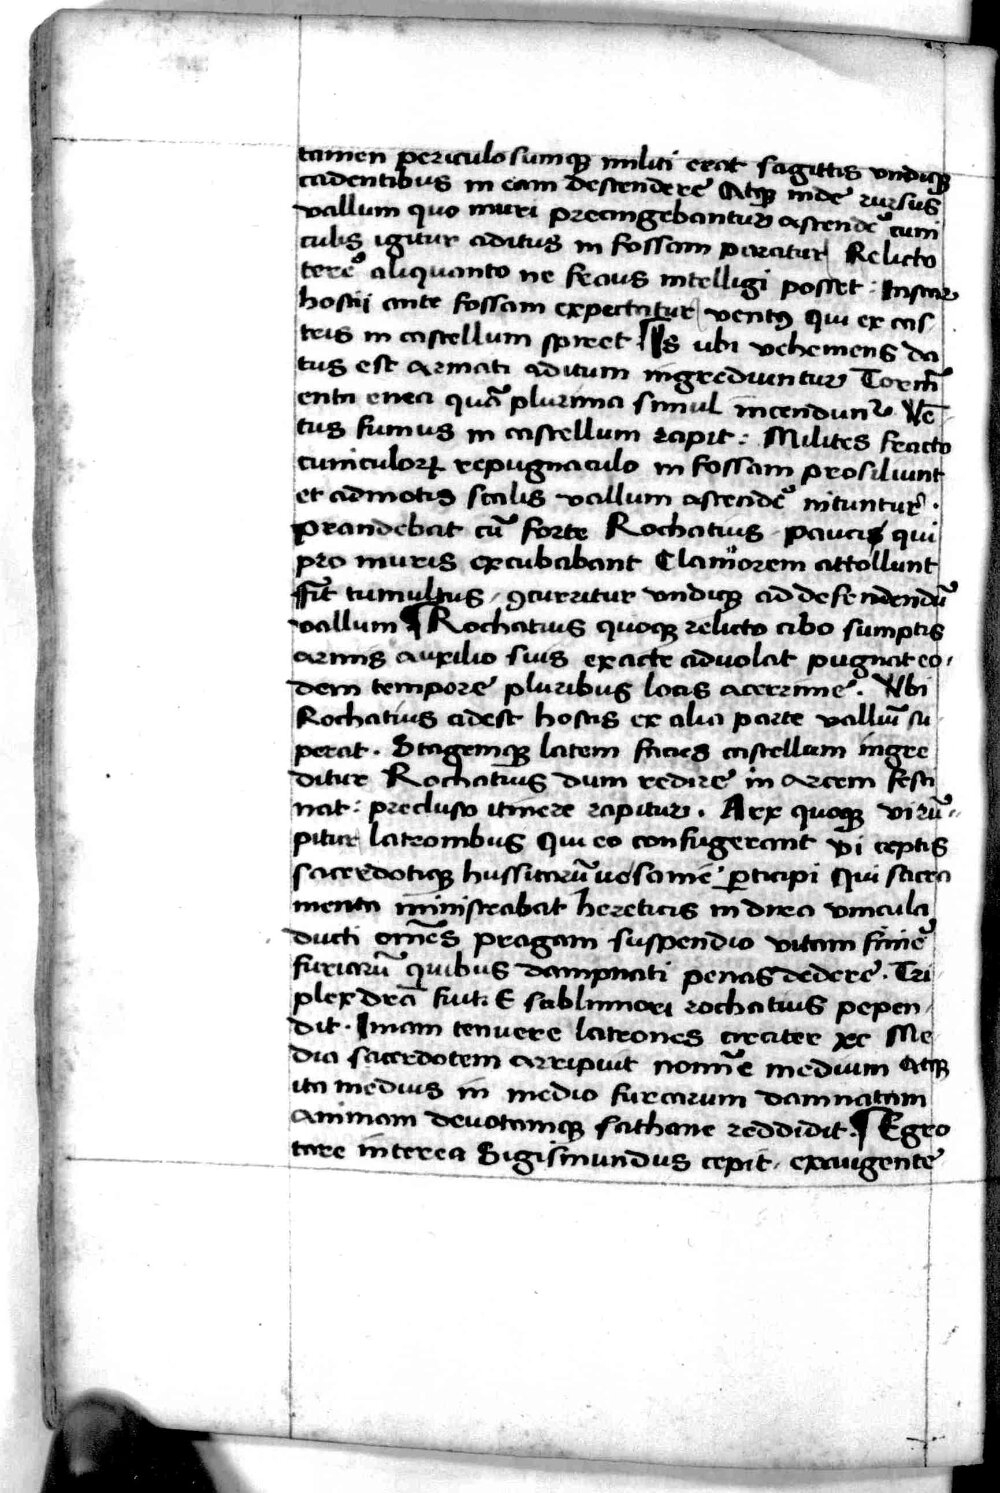 tamen periculosumqꝫ militi erat sagittis vndiqꝫ
cadentibus in eam descendere Atqꝫ inde rursus
vallum quo muri precingebantur ascende᷒ cuni
culis igitur aditus in fossam paratur Relicto
tere᷒ aliquanto ne secus intelligi posset : Instar
hostij ante fossam expectatur ventꝰ Qui ex cas-
tris in castellum spiret ¶ Is ubi vehemens da
tus est Armati aditum ingrediuntur Torm̄
enta enea quā plurima simul incendunt᷒ Vē-
tus fumus in castellum rapit : Milites fracto
cuniculorꝝ repugnaculo in fossam prosiliunt
et admotis scalis vallum ascende᷒ nituntur .
prandebat tū forte Rochatius paucis qui
pro muris excubabant Clamorem attollunt
fit tumultus / ꝯcurritur vndiqꝫ ad defendendū
vallum ¶ Rochatius quoqꝫ relicto cibo sumptis
armis auxilio suis ex arce aduolat pugnat eo-
dem tempore pluribus locis acerrime . Vbi
Rochatius adest hostis ex alia parte vallū su-
perat . Stragemqꝫ latem facies castellum ingre
ditur Rochatius dum redire in arcem festi
nat : precluso itinere rapitur . Arx quoqꝫ vi rū-
pitur latronibus Qui eo confugerant Vi ceptis
sacerdotiqꝫ hussitarū uesanie ꝑticipi Qui sacra
menta ministrabat hereticis in dira vincula
ducti om̄es pragam suspendio vitam finie᷒
furiarū quibus dampnati penas dedere . Tri
plex dr̄a fuit E sablimiori rochatius pepen-
dit . Imam tenuere latrones circiter xc Me
dia sacerdotem arripuit nomīe medium Atqꝫ
ita medius in medio furcarum damnatam
Animam deuotamqꝫ sathane reddidit . ¶ Egro
tare interea Sigismundus cepit / exurgente